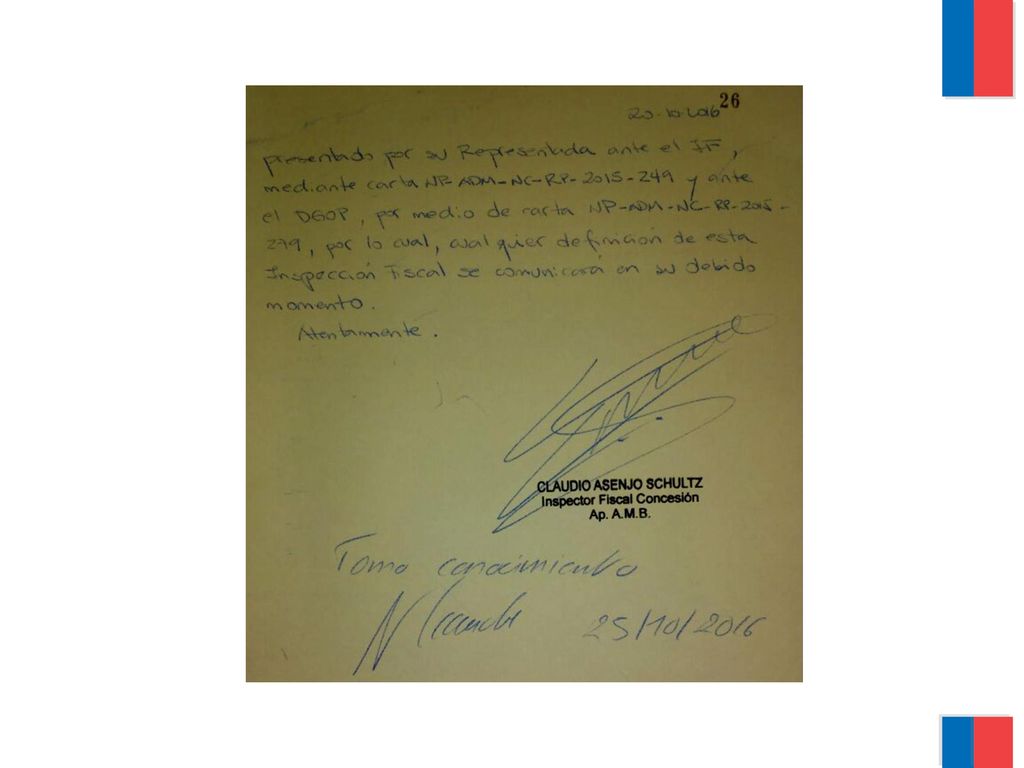 26
20-10-2016
presentado por su Representada ante el IF,
mediante carta NP-ADM-NC-RP-2015-249 y ante
el DGOP, por medio de carta NP-ADM-NC-RP-2015-
279, por lo cual, cualquier definición de esta
Inspección Fiscal se comunicará en su debido
momento.
Atentamente.
CLAUDIO ASENJO SCHULTZ
Inspector Fiscal Concesión
Ap. A.M.B.
Tomo conocimiento
25/10/2016